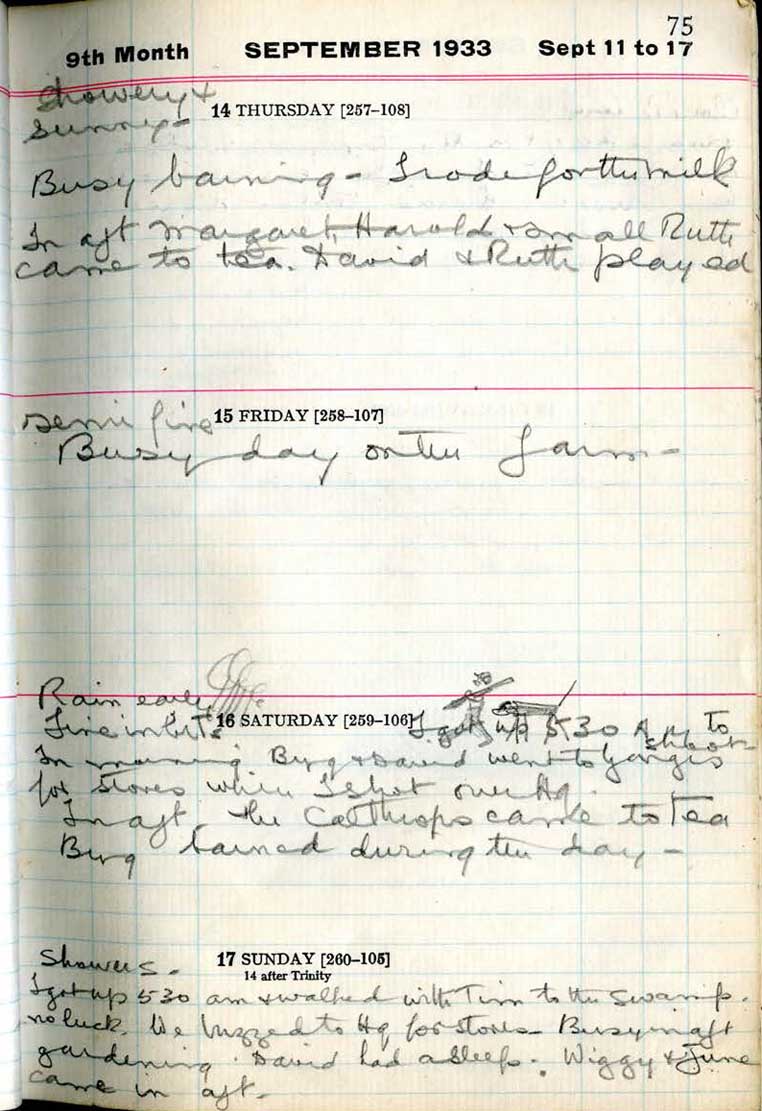 75
9th Month SEPTEMBER 1933 Sept 11 to 17
Showery &
14 THURSDAY [257–108]
Sunny–
Busy baining – I rode for the milk
In aft Margaret, Harold & small Ruth
came to tea. David & Ruth played
Semi fine 15 FRIDAY [258–107]
Busy day on the farm –
Rain early
Fine in bits 16 SATURDAY [259–106] I got up 5 30 A M to
shoot
In morning Berg & David went to Ganges
for stores while I shot over Hq.
In aft the Calthrops came to tea
Berg bained during the day –
Showers. 17 SUNDAY [260–105]
14 after Trinity
I got up 5 30 am & walked with Tim to the Swamp.
no luck. We buzzed to Hq for stores – Busy in aft
gardening. David had a sleep. Wiggy & June
came in aft –